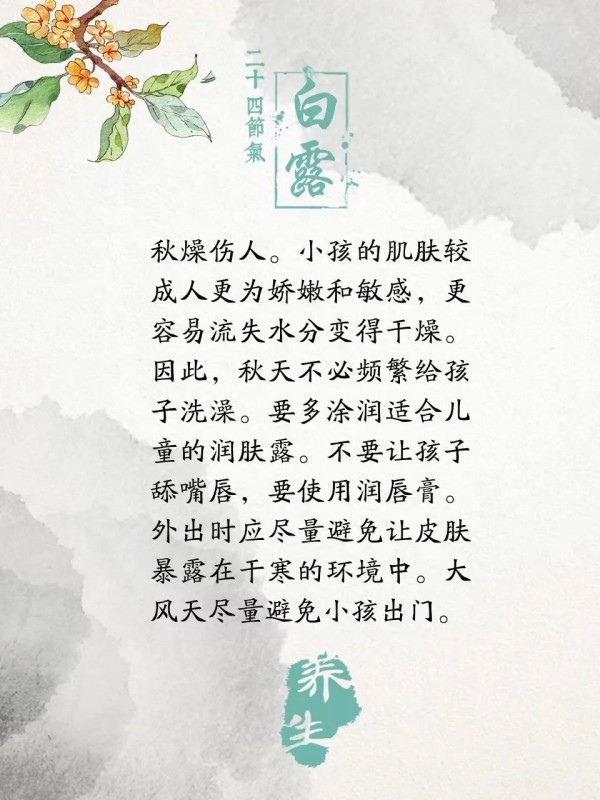 二十四節氣
白露
秋燥伤人。小孩的肌肤较
成人更为娇嫩和敏感，更
容易流失水分变得干燥。
因此，秋天不必频繁给孩
子洗澡。要多涂润适合儿
童的润肤露。不要让孩子
舔嘴唇，要使用润唇膏。
外出时应尽量避免让皮肤
暴露在干寒的环境中。大
风天尽量避免小孩出门。
养生